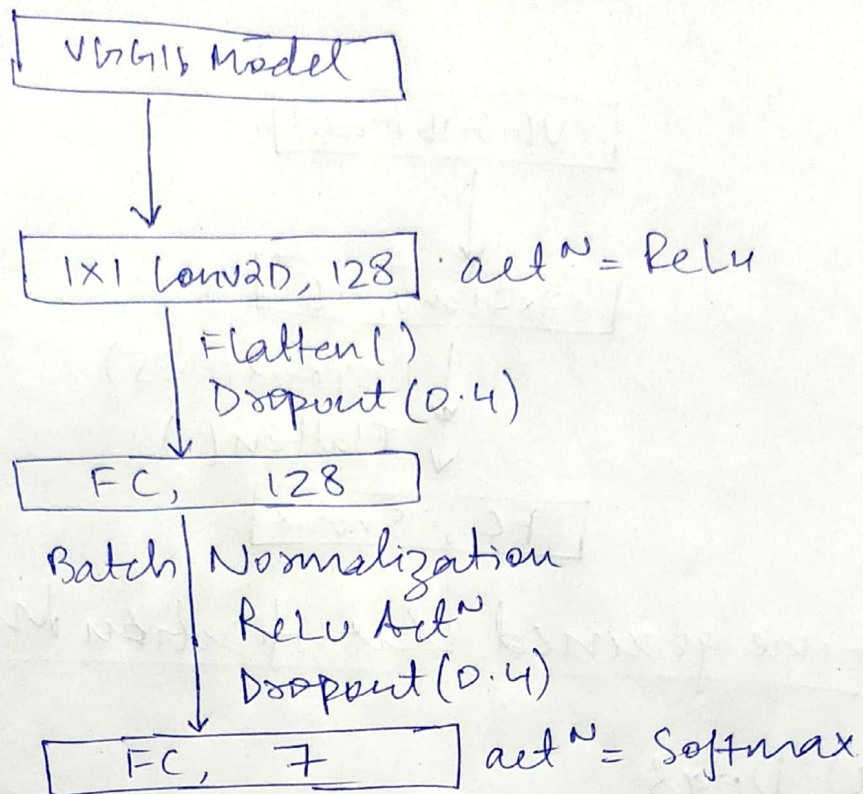 VGG16 Model
1X1 Conv2D, 128 actN = ReLu
Flatten()
Dropout (0.4)
FC, 128
Batch Normalization
ReLu ActN
Dropout (0.4)
FC, 7 actN = Softmax